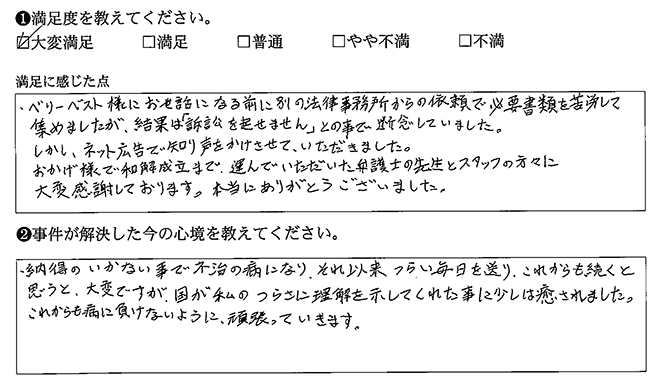 ❶満足度を教えてください。
☑大変満足 □満足 □普通 □やや不満 □不満
満足に感じた点
・ベリーベスト様にお世話になる前に別の法律事務所からの依頼で必要書類を苦労して
集めましたが、結果は「訴訟を起せません」との事で断念していました。
しかし、ネット広告で知り声をかけさせて、いただきました。
おかげ様で和解成立まで、運んでいただいた弁護士の先生とスタッフの方々に
大変感謝しております。本当にありがとうございました。
❷事件が解決した今の心境を教えてください。
・納得のいかない事で不治の病になり、それ以来つらい毎日を送り、これからも続くと
思うと、大変ですが、国が私のつらさに理解を示してくれた事に少しは癒されました。
これからも病に負けないように、頑張っていきます。